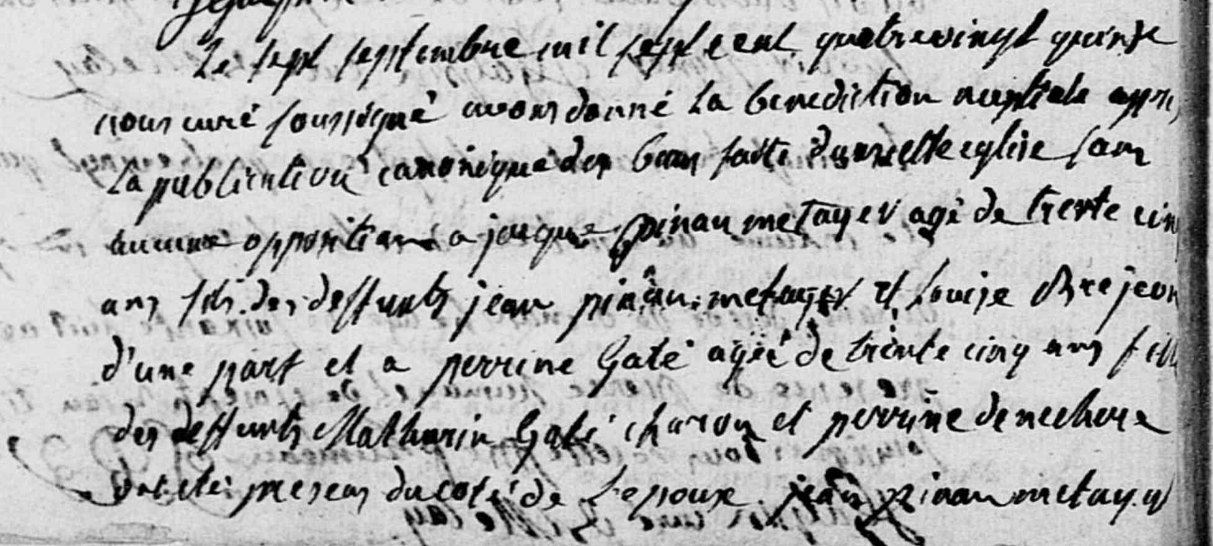 Le sept septembre mil sept cent quatrevingt quinze
nous curé soussigné avons donné La benediction nuptiale apres
La publication canonique des bans faite dans cette eglise sans
aucune opposition a jacque pinau metayer agé de trente cin
ans fils des deffunts jean pinau metayer et Louise Brejeon
d'une part et a perrine Gaté agée de trente cinq ans fille
des deffunts Mathurin Gaté charon et perrine denechere
ont été presens du coté de L'epoux jean pinau metayer